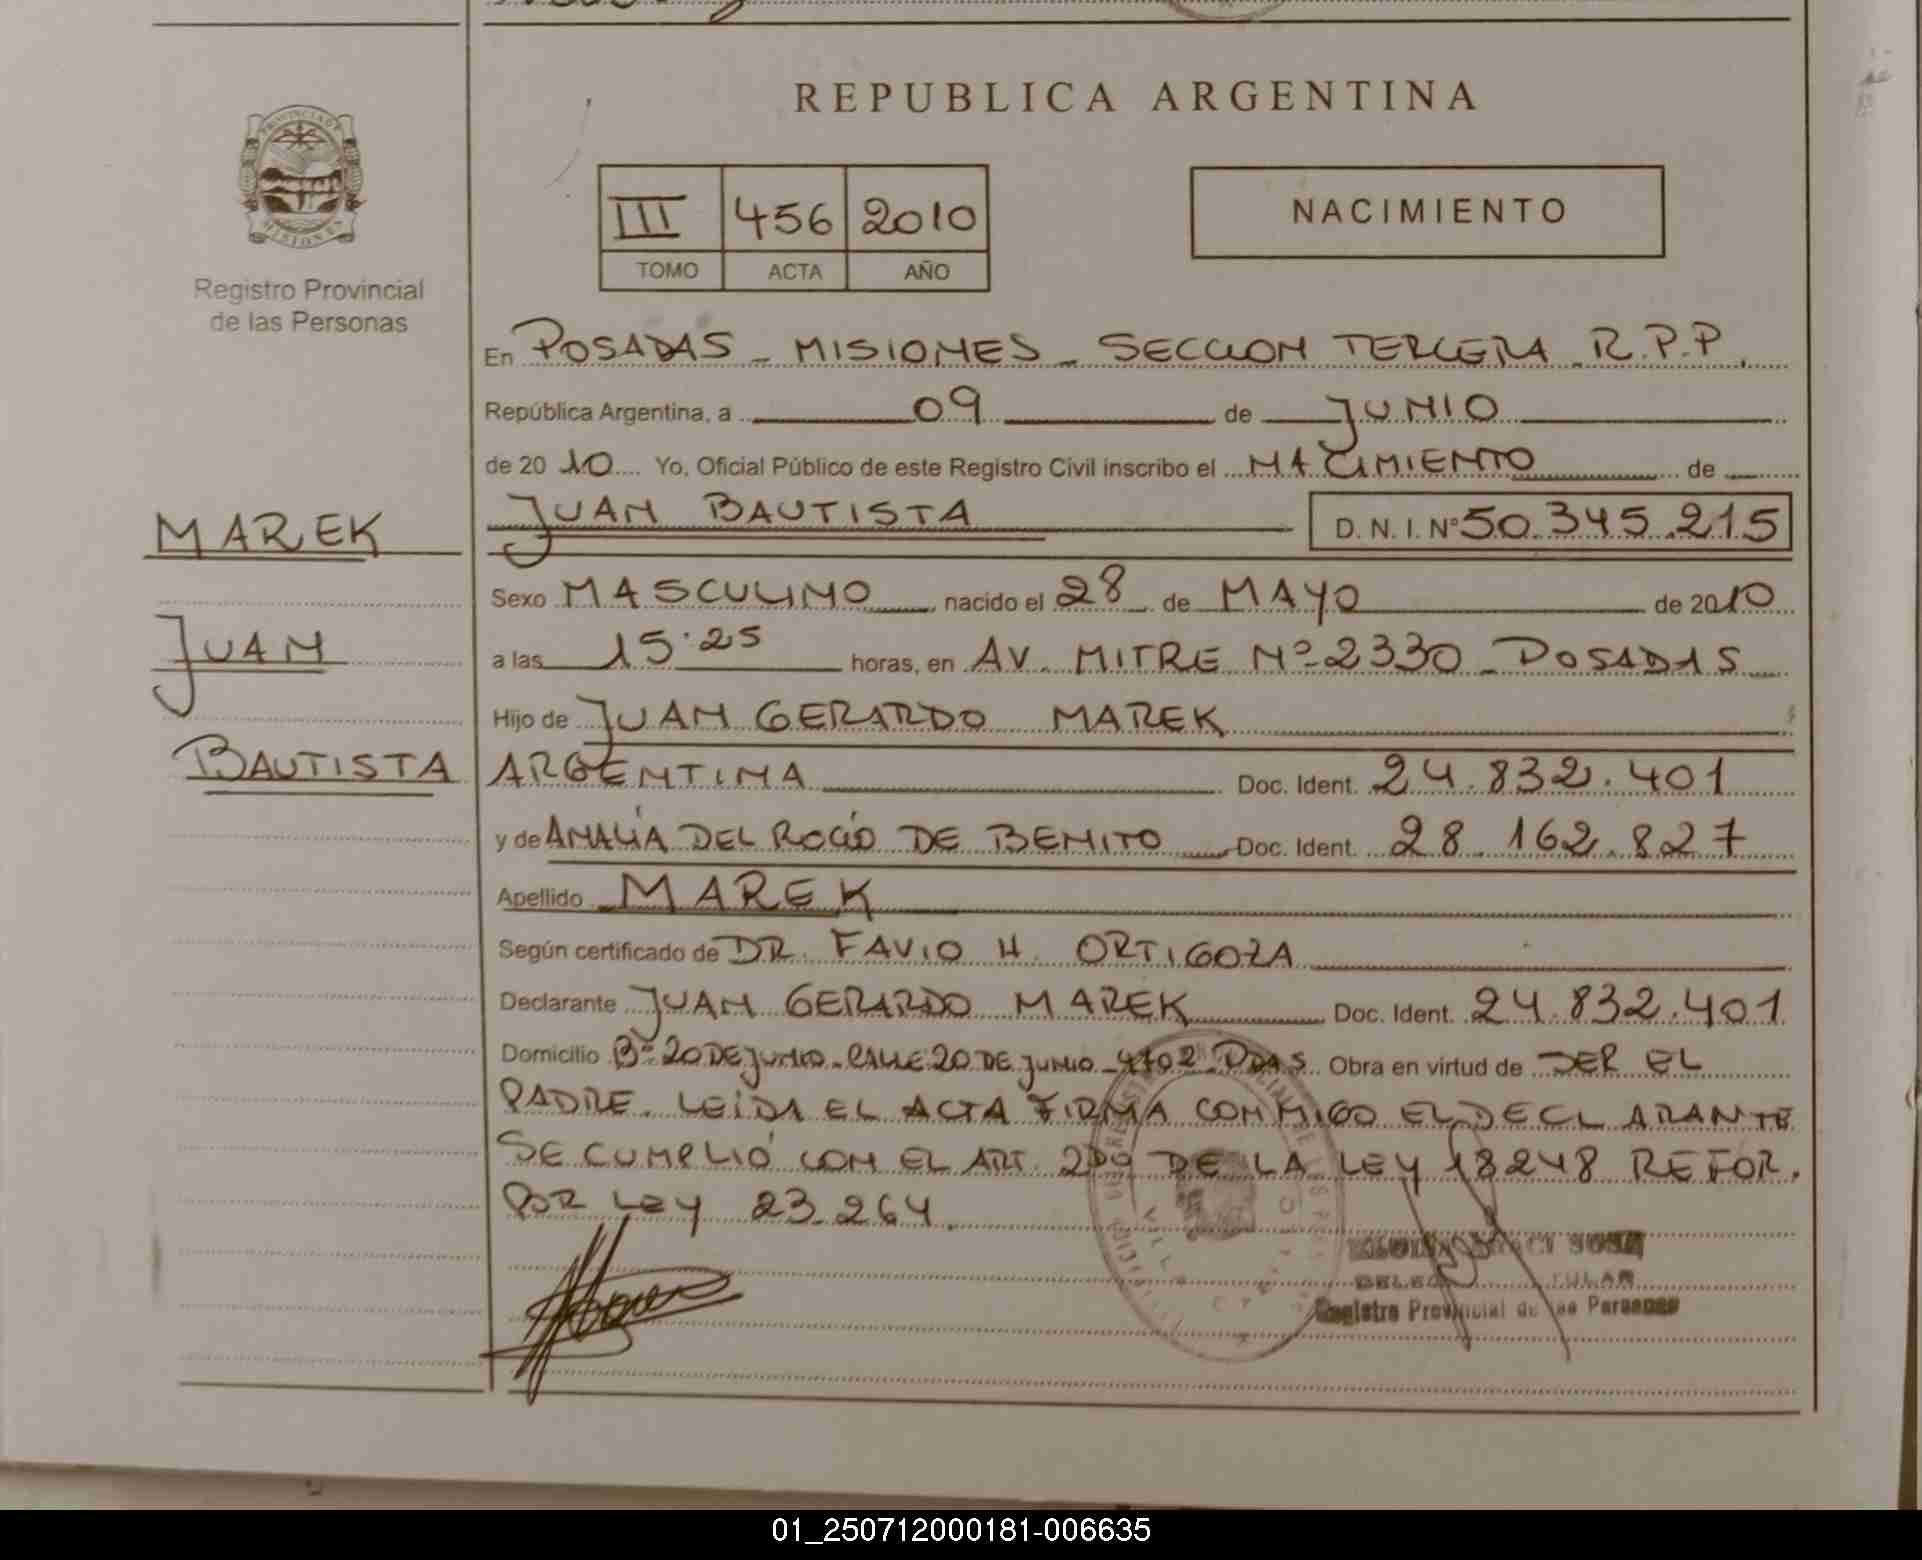 REPUBLICA ARGENTINA
PROVINCIA DE
MISIONES
Registro Provincial
de las Personas
III 456 2010
TOMO ACTA AÑO
NACIMIENTO
En POSADAS - MISIONES - SECCION TERCERA R.P.P.
República Argentina, a 09 de JUNIO
de 20 10 Yo, Oficial Público de este Registro Civil inscribo el NACIMIENTO de
JUAN BAUTISTA D.N.I. Nº 50.345.215
MAREK
JUAN
BAUTISTA
Sexo MASCULINO, nacido el 28 de MAYO de 2010
a las 15:25 horas, en AV. MITRE Nº 2330 - POSADAS
Hijo de JUAN GERARDO MAREK
ARGENTINA Doc. Ident. 24.832.401
y de AMALÍA DEL ROCÍO DE BENITO Doc. Ident. 28.162.827
Apellido MAREK
Según certificado de DR. FAVIO H. ORTIGOZA
Declarante JUAN GERARDO MAREK Doc. Ident. 24.832.401
Domicilio Bº 20 DE JUNIO - CALLE 20 DE JUNIO - 4702 - PDAS. Obra en virtud de SER EL
PADRE. LEIDA EL ACTA FIRMA CONMIGO EL DECLARANTE
SE CUMPLIÓ CON EL ART. 2DO DE LA LEY 18248 REFOR.
POR LEY 23.264.
SOSA
TULAR
Registro Provincial de las Personas
01_250712000181-006635